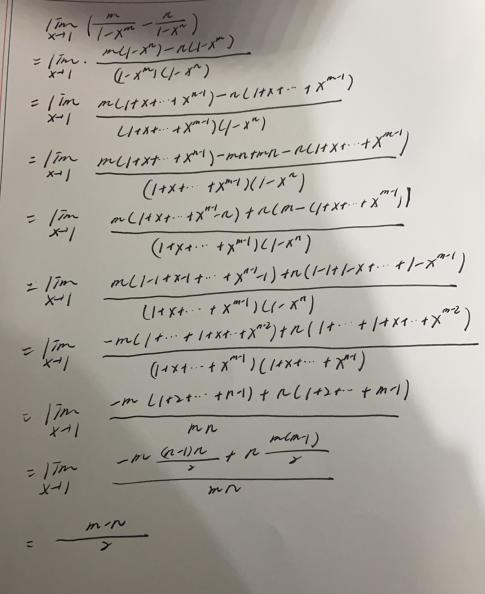 lim x→1 (m/(1-x^m) - n/(1-x^n))
= lim x→1 · (m(1-x^n)-n(1-x^m))/((1-x^m)(1-x^n))
= lim x→1 (m(1+x+⋯+x^{n-1})-n(1+x+⋯+x^{m-1}))/((1+x+⋯+x^{m-1})(1-x^n))
= lim x→1 (m(1+x+⋯+x^{n-1})-mn+mn-n(1+x+⋯+x^{m-1}))/((1+x+⋯+x^{m-1})(1-x^n))
= lim x→1 (m(1+x+⋯+x^{n-1}-n)+n(m-(1+x+⋯+x^{m-1})))/((1+x+⋯+x^{m-1})(1-x^n))
= lim x→1 (m(1-1+x-1+⋯+x^{n-1}-1)+n(1-1+1-x+⋯+1-x^{m-1}))/((1+x+⋯+x^{m-1})(1-x^n))
= lim x→1 (-m(1+⋯+1+x+⋯+x^{n-2})+n(1+⋯+1+x+⋯+x^{m-2}))/((1+x+⋯+x^{m-1})(1+x+⋯+x^{n-1}))
= lim x→1 (-m(1+2+⋯+n-1)+n(1+2+⋯+m-1))/(mn)
= lim x→1 (-m (n-1)n/2 + n m(m-1)/2)/(mn)
= (m-n)/2